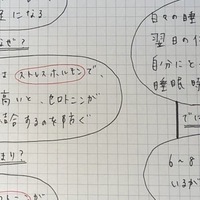 になる
なぜ?
は ストレスホルモン で、
高いと、セロトニンが
結合するのを防ぐ
まり?
が
日々の睡
翌日の
自分にと
睡眠時
でに
6〜8
いるが